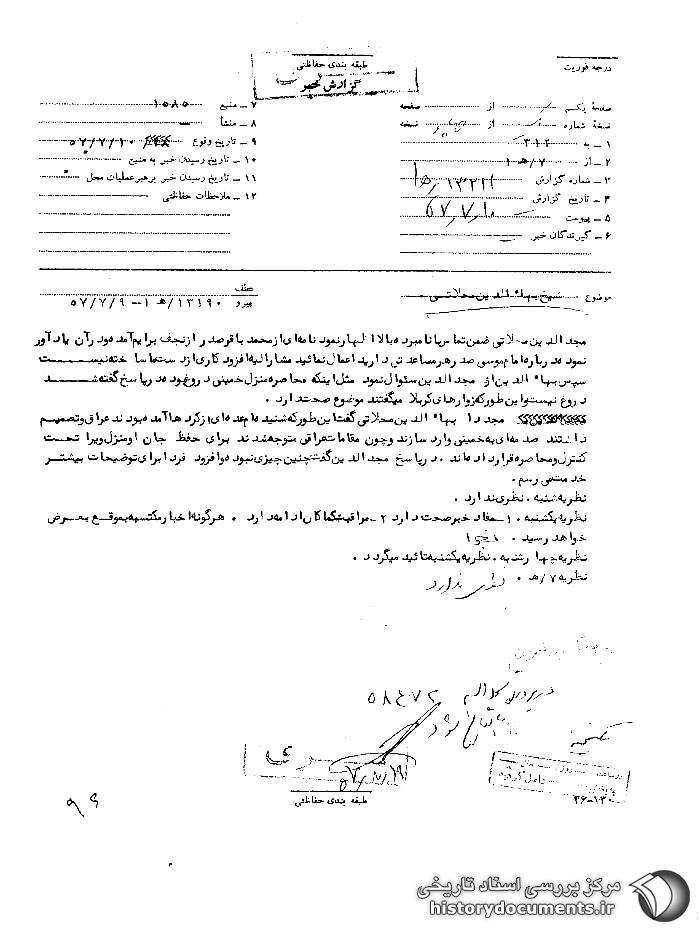 طبقه بندی حفاظتی
گزارش خبر
درجه فوریت
صفحه یکم از صفحه
نسخه شماره از نسخه
۱ – به ۳۱۲
۲ – از ۷/هـ ۱
۳ – شماره گزارش ۱۳۲۲۲/هـ۱
۴ – تاریخ گزارش ۵۷/۷/۱۰
۵ – پیوست
۶ – گیرندگان خبر
۷ – منبع ۱۰۸۵
۸ – منشأ
۹ – تاریخ وقوع ۵۷/۷/۱۰
۱۰ – تاریخ رسیدن خبر به منبع
۱۱ – تاریخ رسیدن خبر برهبر عملیات محل
۱۲ – ملاحظات حفاظتی
موضوع شیخ بهاء الدین محلاتی
عطف
پیرو ۱۳۱۹۰/هـ ۱ – ۵۷/۷/۹
مجد الدین محلاتی ضمن تماس با نامبرده بالا اظهار نمود نامه ای از محمد باقر صدر از نجف برایم آمده و در آن یادآور
نموده درباره امام موسی صدر هر مساعدتی دارید اعمال نمائید مشارالیه افزود کاری از دست ما ساخته نیست
سپس بهاء الدین از مجد الدین سئوال نمود مثل اینکه محاصره منزل خمینی دروغ بوده در پاسخ گفته شد
دروغ نیست و این طور که زوارهای کربلا میگفتند موضوع صحت دارد .
بهاء الدین محلاتی گفت این طور که شنیده ام عده ای از کردها آمده بودند عراق و تصمیم
داشتند صدمه ای به خمینی وارد سازند و چون مقامات عراقی متوجه شدند برای حفظ جان او منزل ویرا تحت
کنترل و محاصره قرار داده اند . در پاسخ مجد الدین گفت چنین چیزی نبوده و افزود فردا برای توضیحات بیشتر
خدمت می رسم .
نظریه شنبه . نظری ندارد .
نظریه یکشنبه . ۱ – مفاد خبر صحت دارد ۲ – مراقبت کماکان ادامه دارد . هرگونه اخبار مکتسبه بموقع بعرض
خواهد رسید .
نظریه چهارشنبه . نظریه یکشنبه تائید میگردد .
نظریه ۷/هـ . نظری ندارد
۵۸۴۷۲
طبقه بندی حفاظتی
۳۶-۱۳۰
۹۶
مرکز بررسی اسناد تاریخی
historydocuments.ir